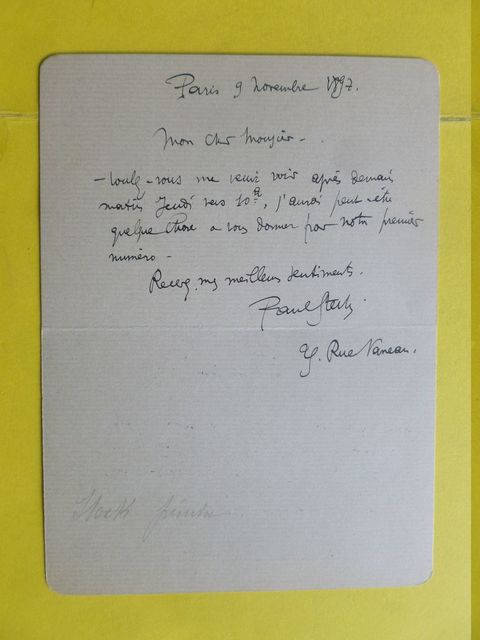 Paris 9 novembre 1897.
Mon cher Monsieur -
- voulez-vous me venir voir après demain
matin Jeudi vers 10h, j'aurai peut-être
quelque chose a vous donner pour notre premier
numéro -
Recevez mes meilleurs sentiments.
Paul
Rue Vaneau.